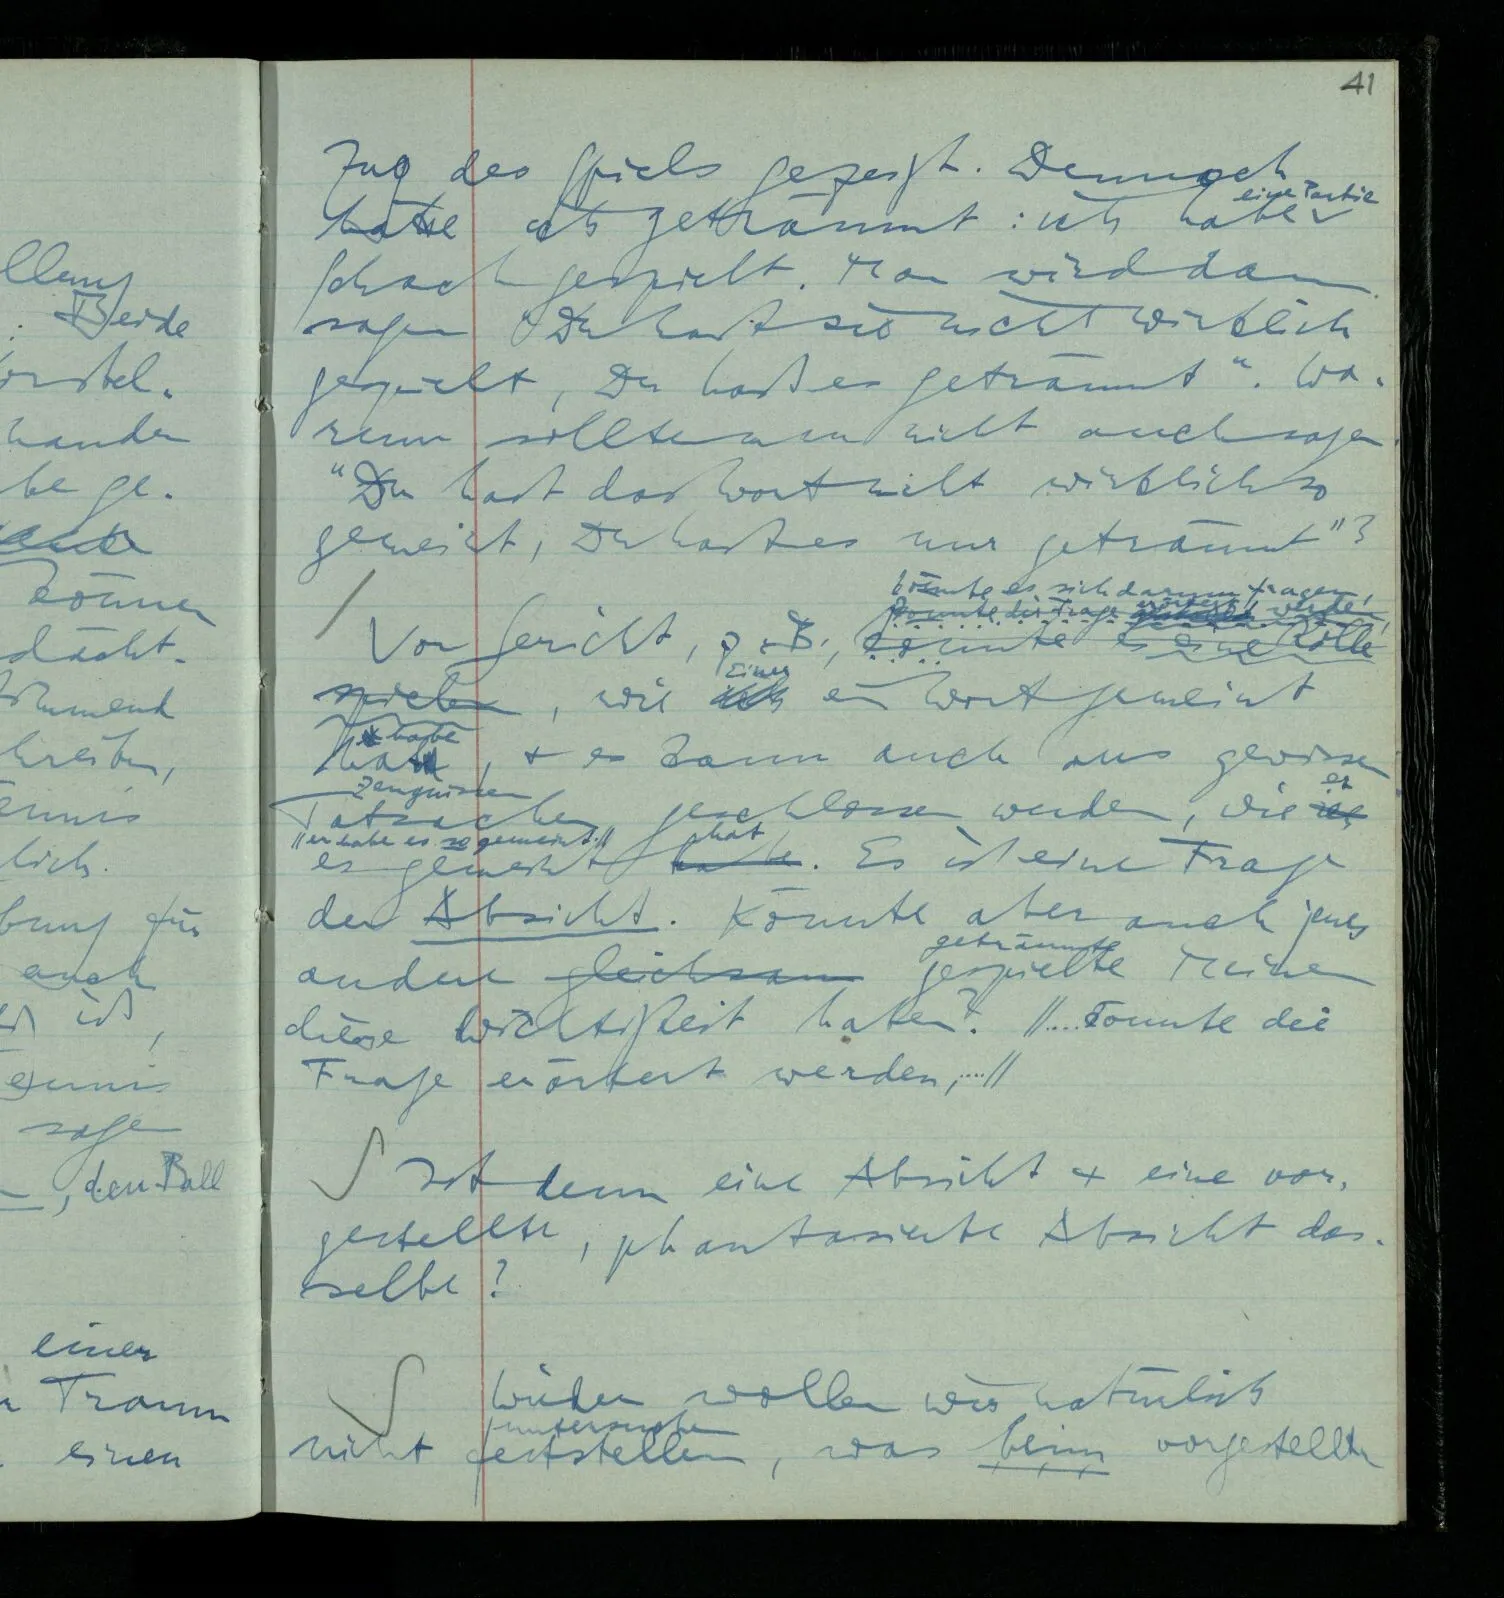 llung
. Beide
orstel-
handen
be ge-
können
dächt-
stimmend
hreiben,
lich.
bung für
auch
ist,
sagen
, den Ball
einer
n Traum
einen
41
Zug des Spiels gezeigt. Dennoch
eine Partie
hatte ich geträumt: ich habe
Schach gespielt. Man wird dann
sagen "Du hast sie nicht wirklich
gespielt, Du hast es geträumt". Wa-
rum sollte man nicht auch sagen
"Du hast das Wort nicht wirklich so
gemeint, Du hast es nur geträumt"?
könnte es sich darum fragen,
konnte die Frage erörtert werden,
Vor Gericht, z.B., könnte es eine Rolle
Einer
spielen, wie ich ein Wort gemeint
habe
hat, & es kann auch aus gewissen
Zeugnissen er
Tatsachen geschlossen werden, wie
//er habe es so gemeint.// hat
er es gemeint habe. Es ist eine Frage
der Absicht. Könnte aber auch jenes
geträumte
andere gleichsam gespielte Meinen
diese Wichtigkeit haben? //....konnte die
Frage erörtert werden,....//
Ist denn eine Absicht & eine vor-
gestellte, phantasierte Absicht das-
selbe?
Wieder wollen wir natürlich
untersuchen
nicht feststellen, was beim vorgestellten